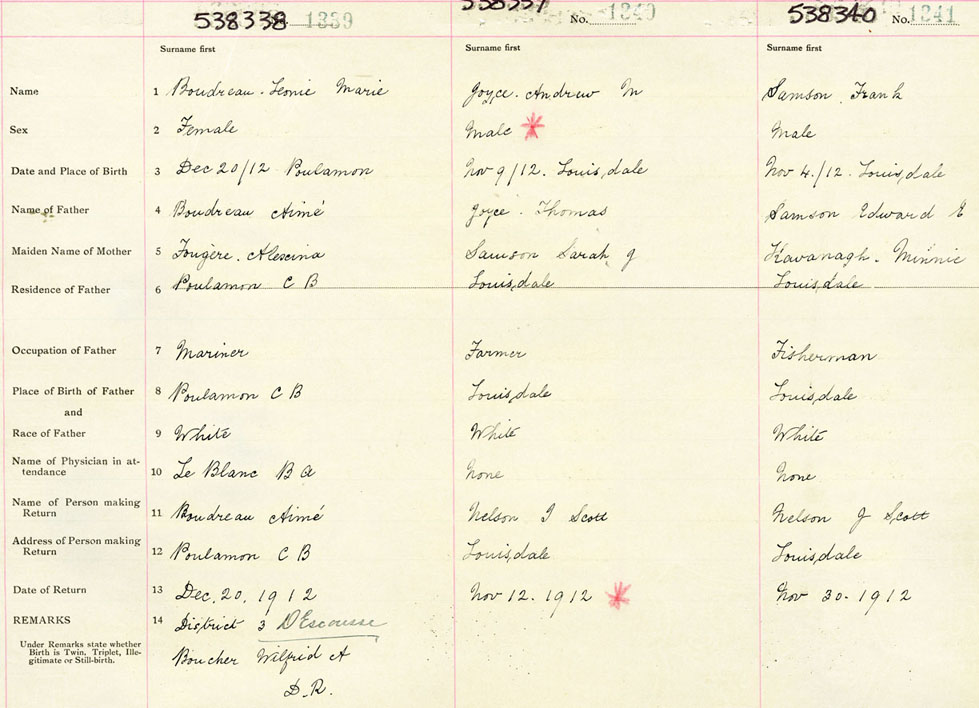 538338 1339 No. 1340 538340 No. 1341
Surname first Surname first Surname first
Name 1 Boudreau. Leonie Marie Joyce. Andrew M Samson Frank
Sex 2 Female Male Male
Date and Place of Birth 3 Dec 20/12 Poulamon Nov 9/12. Louisdale Nov 4./12. Louisdale
Name of Father 4 Boudreau Aimé Joyce. Thomas Samson Edward E
Maiden Name of Mother 5 Fougère. Alexina Samson Sarah J Kavanagh. Minnie
Residence of Father 6 Poulamon C B Louisdale Louisdale
Occupation of Father 7 Mariner Farmer Fisherman
Place of Birth of Father 8 Poulamon C B Louisdale Louisdale
and
Race of Father 9 White White White
Name of Physician in at-
tendance 10 Le Blanc B A None None
Name of Person making
Return 11 Boudreau Aimé Nelson J Scott Nelson J Scott
Address of Person making
Return 12 Poulamon C B Louisdale Louisdale
Date of Return 13 Dec. 20. 1912 Nov 12. 1912 Nov 30. 1912
REMARKS 14 District 3 D'Escousse
Under Remarks state whether
Birth is Twin, Triplet, Ille-
gitimate or Still-birth. Boucher Wilfrid A
D.R.